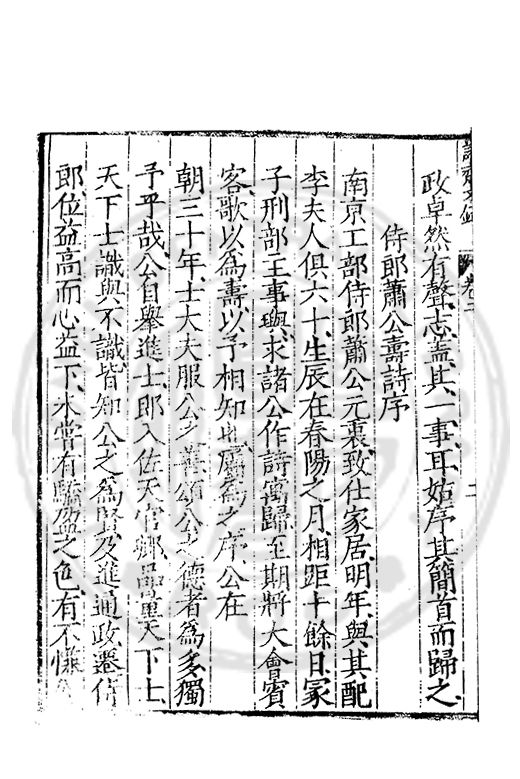 政卓然有聲志蓋其一事耳姑序其簡首而歸之
侍郎蕭公壽詩序
南京工部侍郎蕭公元裏致仕家居明年與其配
李夫人俱六十生辰在春陽之月相距十餘日冢
子刑部主事與求諸公作詩寓歸至期將大會賓
客歌以為壽以予相知也屬為之序公在
朝三十年士大夫服公之善頌公之德者為多獨
予乎哉公自舉進士即入佐天官鄉品量天下士
天下士識與不識皆知公之為賢及進通政遷侍
郎位益高而心益下未嘗有驕盈之色有不慊
卷二
二